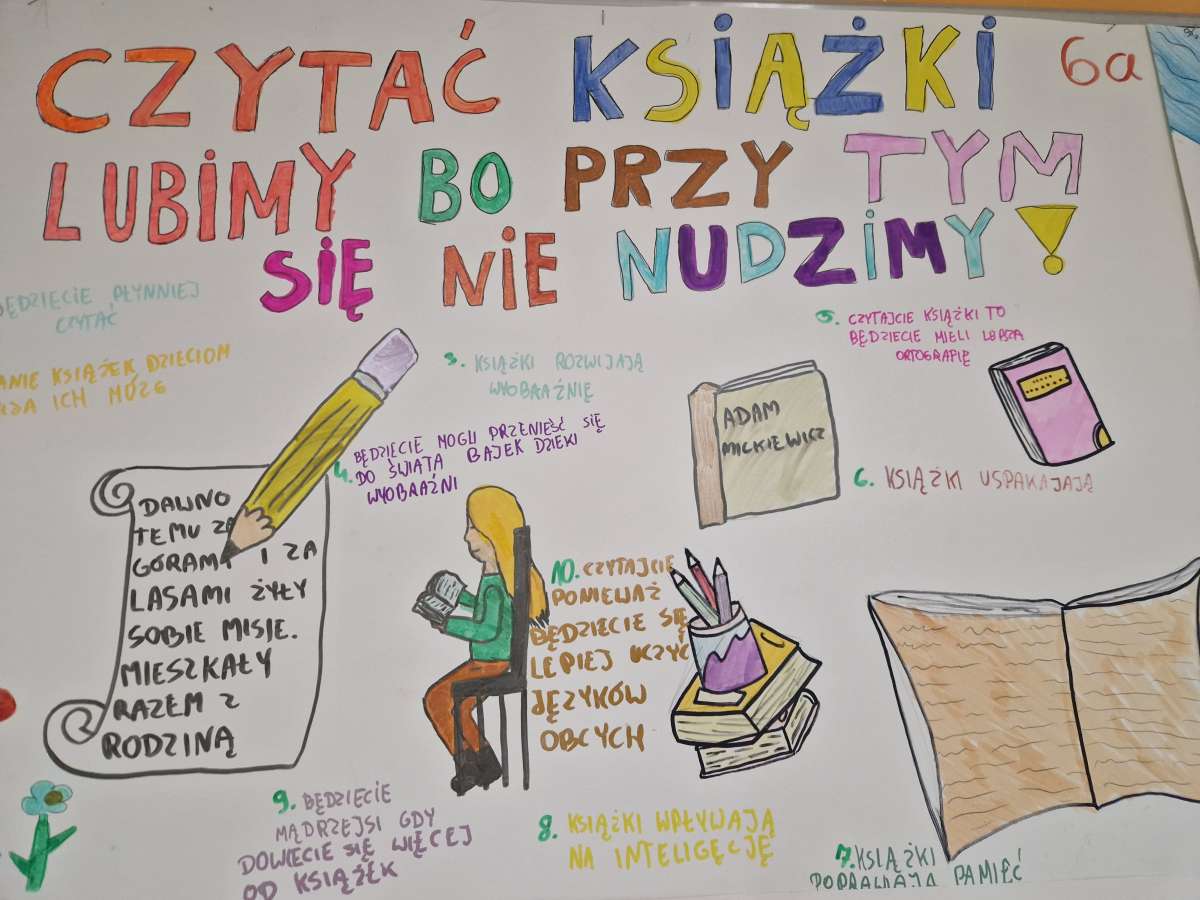 CZYTAĆ KSIĄŻKI
6a
LUBIMY BO PRZY TYM
SIĘ NIE NUDZIMY!
BĘDZIECIE PŁYNNIEJ
CZYTAĆ
KSIĄŻEK DZIECIOM
ICH MÓZG
3. KSIĄŻKI ROZWIJAJĄ
WYOBRAŹNIĘ
4. BĘDZIECIE MOGLI PRZENIEŚĆ SIĘ
DO ŚWIATA BAJEK DZIEKI
WYOBRAŹNI
5. CZYTAJCIE KSIĄŻKI TO
BĘDZIECIE MIELI LEPSZĄ
ORTOGRAFIĘ
ADAM
MICKIEWICZ
6. KSIĄŻKI USPAKAJAJĄ
DAWNO
TEMU ZA
GÓRAMI I ZA
LASAMI ŻYŁY
SOBIE MISIE.
MIESZKAŁY
RAZEM Z
RODZINĄ
10. CZYTAJCIE
PONIEWAŻ
BĘDZIECIE SIĘ
LEPIEJ UCZYĆ
JĘZYKÓW
OBCYCH
9. BĘDZIECIE
MĄDRZEJSI GDY
DOWIECIE SIĘ WIĘCEJ
OD KSIĄŻEK
8. KSIĄŻKI WPŁYWAJĄ
NA INTELIGĘCJĘ
7. KSIĄŻKI
POPRAWIAJĄ PAMIĘĆ